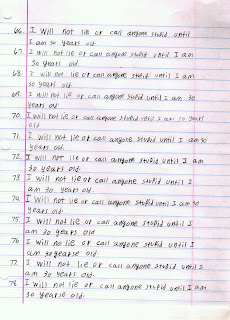 66. I will not lie or call anyone stupid until
I am 30 years old.
67. I will not lie or call anyone stupid until I am
30 years old.
68. I will not lie or call anyone stupid until I am
30 years old.
69. I will not lie or call anyone stupid until I am 30
years old.
70. I will not lie or call anyone stupid until I am 30 years
old.
71. I will not lie or call anyone stupid until I am 30
years old.
72. I will not lie or call anyone stupid until I am
30 years old.
73. I will not lie or call anyone stupid until I
am 30 years old.
74. I will not lie or call anyone stupid until I am 30
years old.
75. I will not lie or call anyone stupid until I
am 30 years old.
76. I will no lie or call anyone stupid until I
am 30 yearse old.
77. I will not lie or call anyone stupid until I
am 30 years old.
78. I will not lie or call anyone stupid until I am
30 yearse old.